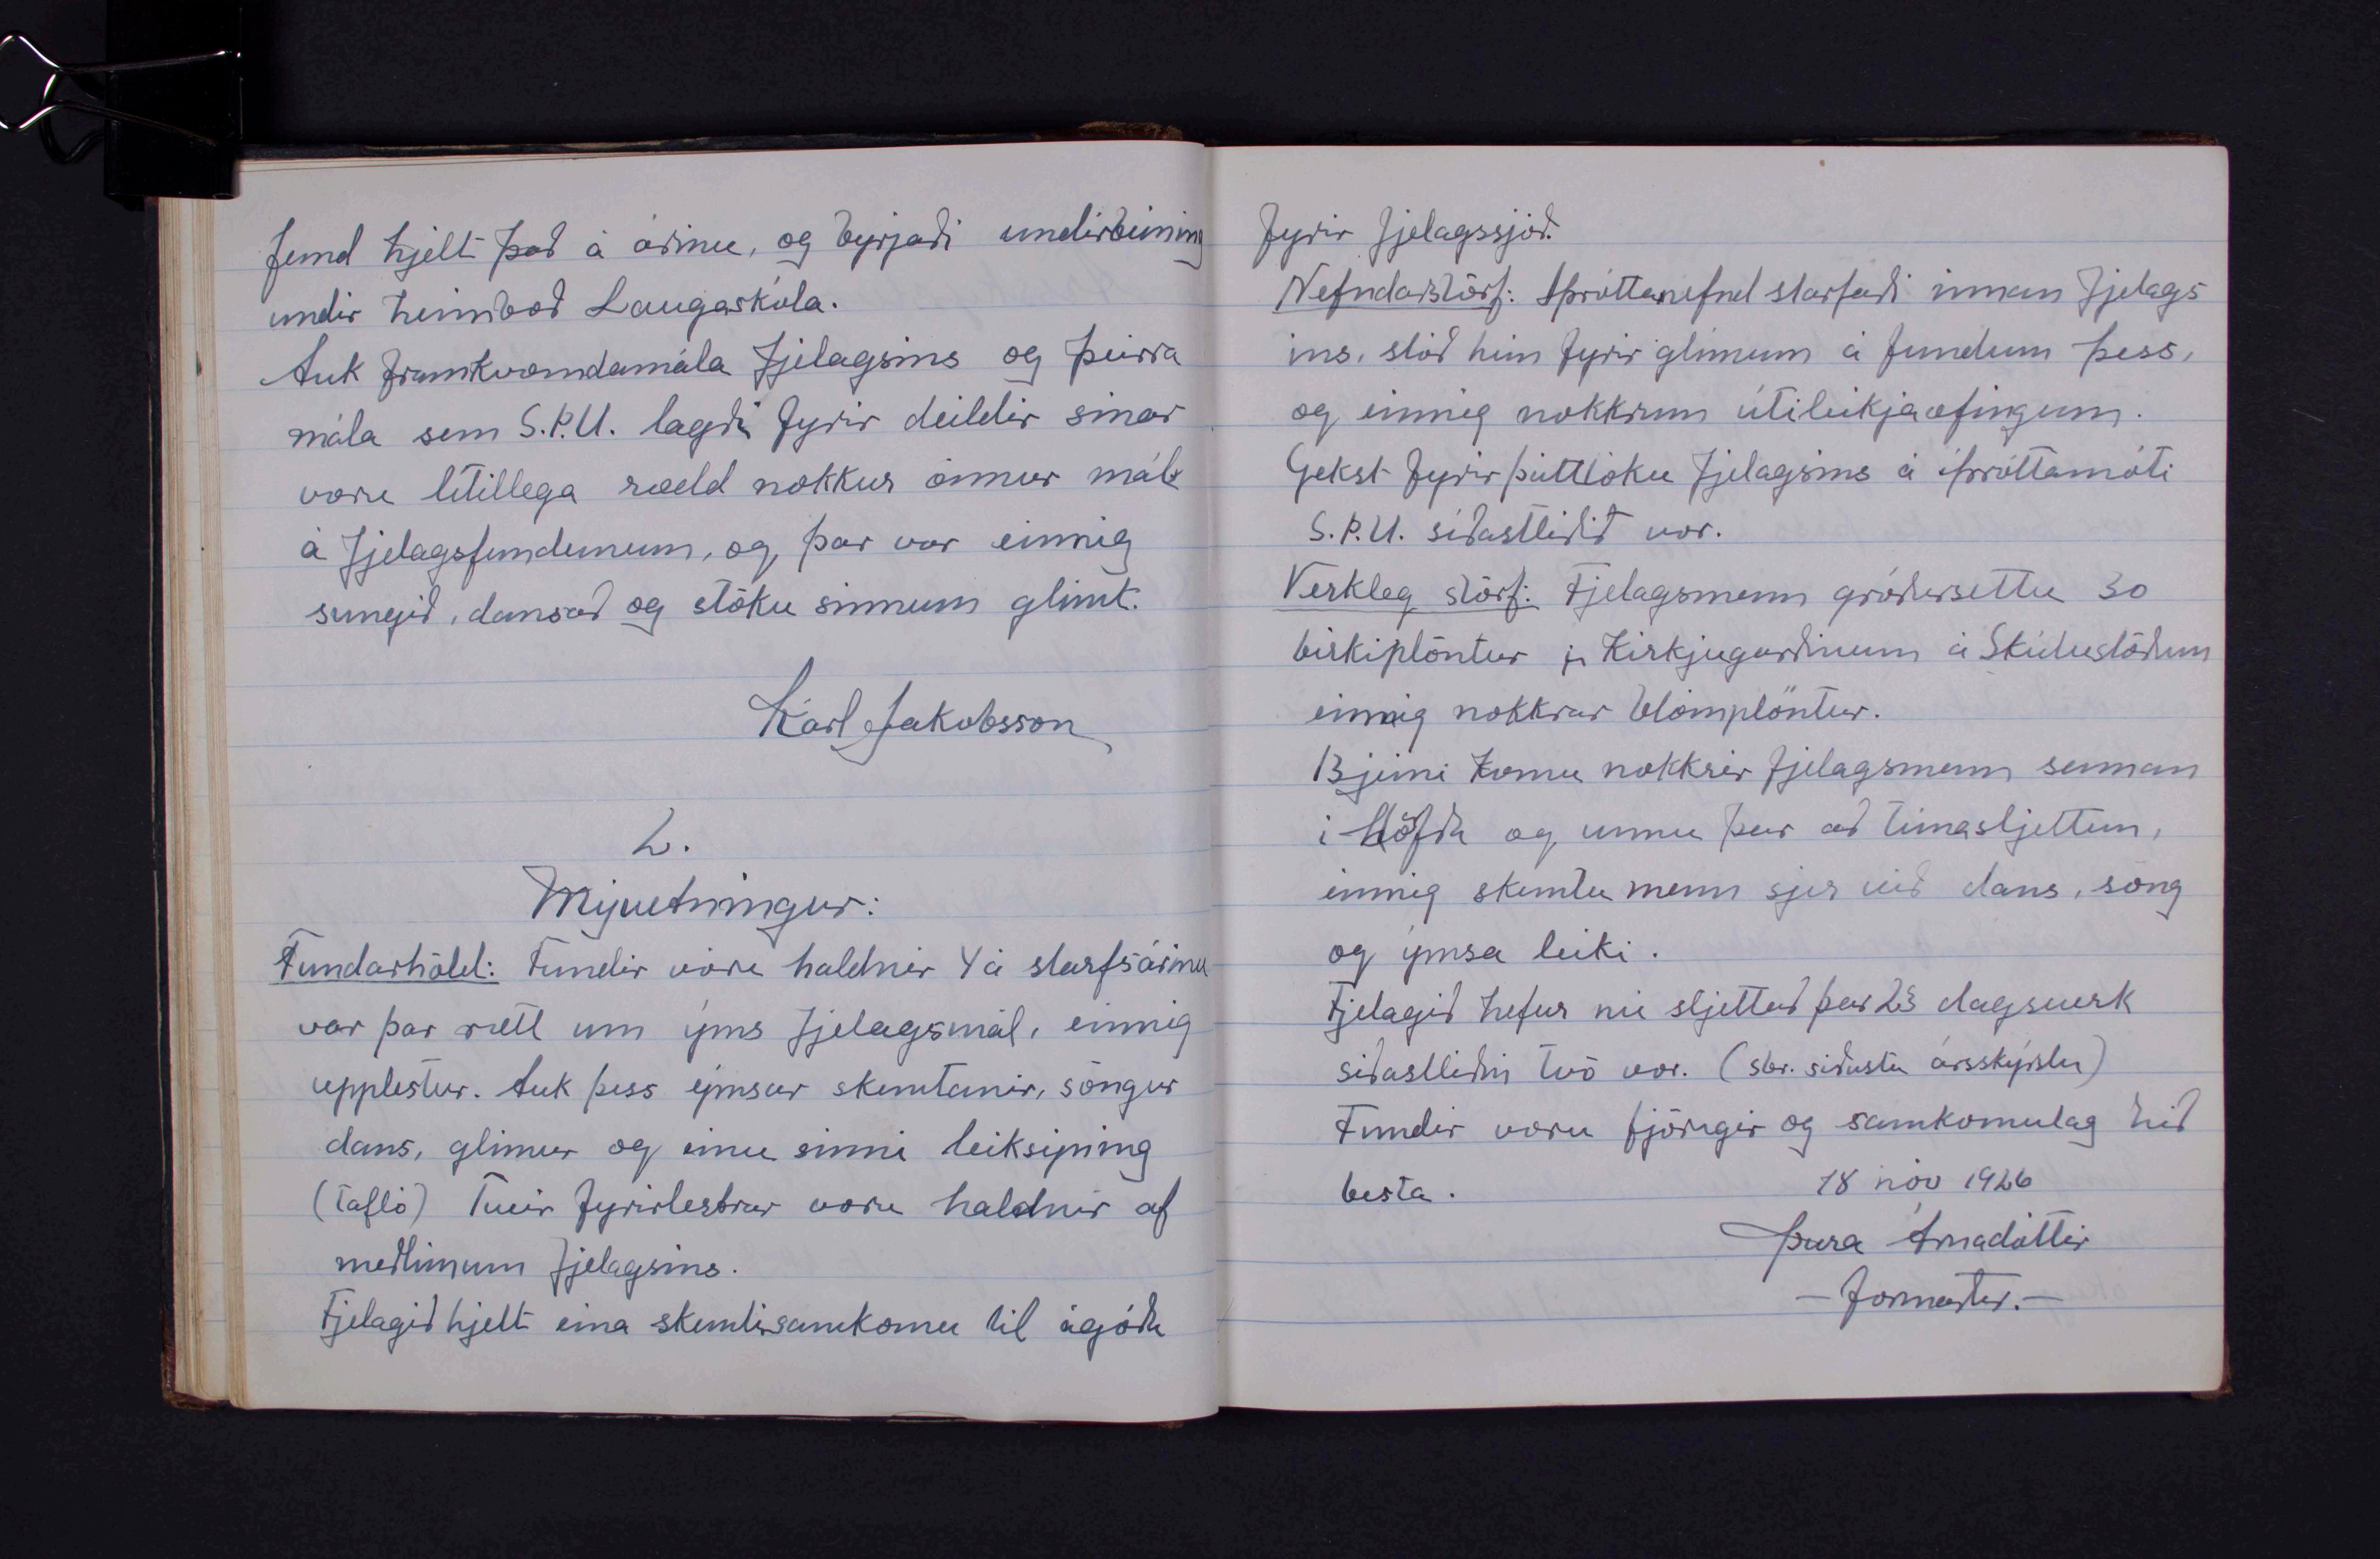 fund hjelt það á árinu, og byrjaði undirbúning
undir heimboð Laugaskóla.
Auk framkvæmdamála fjelagsins og þeirra
mála sem S.Þ.U. lagði fyrir deildir sínar
voru lítillega rædd nokkur önnur mál
á fjelagsfundunum, og þar var einnig
sungið, dansað og stöku sinnum glímt.
Karl Jakobsson
2.
Mývetningur:
Fundarhöld: Fundir vóru haldnir 4 á starfsárinu
var þar rætt um ýms fjelagsmál, einnig
upplestur. Auk þess ýmsar skemtanir, söngur
dans, glímur og einu sinni leiksýning
(Tafló) Tveir fyrirlestrar voru haldnir af
meðlimum fjelagsins.
Fjelagið hjelt eina skemtisamkomu til ágóða
fyrir fjelagssjóð.
Nefndarstörf: Íþróttanefnd starfaði innan fjelags
ins, stóð hún fyrir glímum á fundum þess,
og einnig nokkrum útileikjaæfingum.
Gekst fyrir þátttöku fjelagsins á íþróttamóti
S.Þ.U. síðastliðið vor.
Verkleg störf: Fjelagsmenn gróðursettu 30
birkiplöntur í Kirkjugarðinum á Skútustöðum
einnig nokkrar blómplöntur.
13 júní komu nokkrir fjelagsmenn saman
í Höfða og unnu þar að túnasljettun,
einnig skemtu menn sjer við dans, söng
og ýmsa leiki.
Fjelagið hefur nú sljettað þar 23 dagsverk
síðastliðin tvö vor. (sbr. síðustu ársskýrslu)
Fundir voru fjörugir og samkomulag hið
besta.
18 nóv 1926
Þura Árnadóttir
- formaður. -